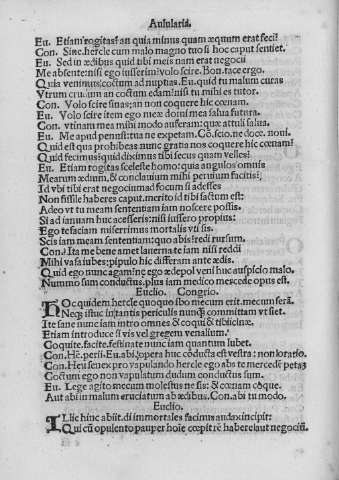 Aulularia.
Eu. Etiam rogitas? an quia minus quam æquum erat feci?
Con. Sine. hercle cum malo magno tuo si hoc caput sentiet.
Eu. Sed in ædibus quid tibi meis nam erat negocii
Me absente: nisi ego iusserim? volo scire. Bon. tace ergo.
Quia venimus coctum ad nuptias. Eu. quid tu malum curas
Vtrum crudum an coctum edam? nisi tu mihi es tutor.
Con. Volo scire sinas: an non coquere hic cœnam.
Eu. Volo scire item ego meæ domi mea salua futura.
Con. vtinam mea mihi modo auferam: quæ attuli salua.
Eu. Me apud penus: tua ne expetam. Cō. scio. ne doce. noui.
Quid est qua prohibeas nunc gratia nos coquere hic cœnam?
Quid fecimus? quid diximus tibi secus quam velles?
Eu. Etiam rogitas sceleste homo: quia angulos omnis
Mearum ædum, & conclauium mihi peruium facitis?
Id vbi tibi erat negocium ad focum si adesses
Non fissile haberes caput. merito id tibi factum est:
Adeo vt tu meam sententiam iam noscere possis.
Si ad ianuam huc acesseris: nisi iussero propius:
Ego te faciam miserrimus mortalis vti sis.
Scis iam meam sententiam: quo abis? redi rursum.
Con. Ita me bene amet lauerna te iam nisi reddi
Mihi vasa iubes: pipulo hic differam ante ædis.
Quid ego nunc agam? ne ego ædepol veni huc auspicio malo.
Nummo sum conductus. plus iam medico mercede opus est.
Euclio. Congrio.
HOc quidem hercle quoquo ibo mecum erit. mecum ferā.
Neq; istuc in tantis periculis nunq̄ committam vt siet.
Ite sane nunc iam intro omnes & coqui & tibicinæ.
Etiam introduce si vis vel gregem venalium.
Coquite. facite. festinate nunc iam quantum lubet.
Con. Hē. perii. Eu. abi, opera huc cōducta est vestra: non loratio.
Con. Heu senex pro vapulando hercle ego abs te mercedē petā
Coctum ego non vapulatum dudum conductus sum.
Eu. Lege agito mecum molestus ne sis: & cœnam cōque.
Aut abi in malum cruciatum ab ædibus. Con. abi tu modo.
Euclio.
ILlic hinc abiit. di immortales facinus audax incipit:
Qui cū opulento pauper hoīe cœpit rē habere laut negociū.